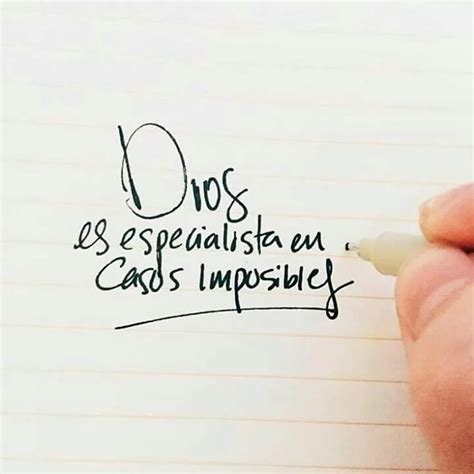 Dios
es especialista en
Casos Imposibles